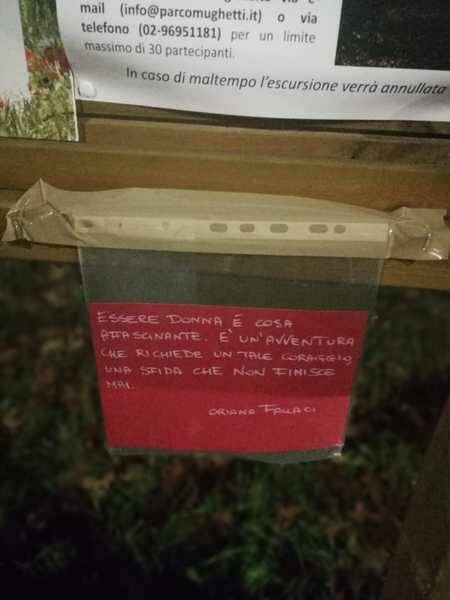 mail (info@parcomughetti.it) o via
telefono (02-96951181) per un limite
massimo di 30 partecipanti.
In caso di maltempo l'escursione verrà annullata
ESSERE DONNA È COSA
AFFASCINANTE. E' UN'AVVENTURA
CHE RICHIEDE UN TALE CORAGGIO,
UNA SFIDA CHE NON FINISCE
MAI.
ORIANA FALLACI